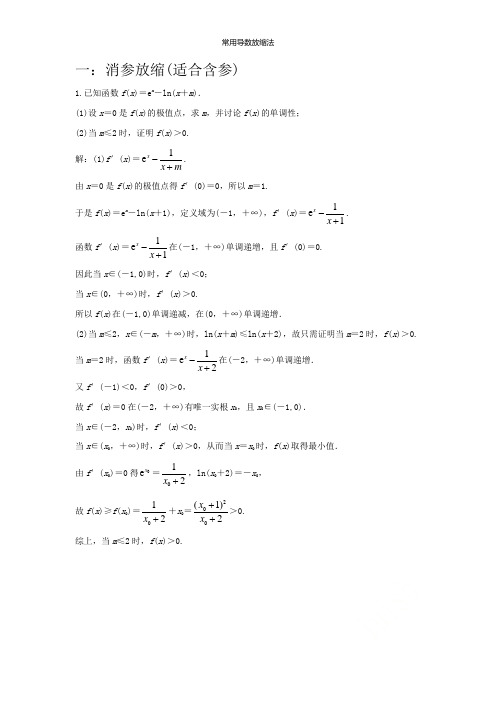 常用导数放缩法
一：消参放缩(适合含参)
1.已知函数f(x)＝eˣ－ln(x＋m)．
(1)设x＝0是f(x)的极值点，求m，并讨论f(x)的单调性；
(2)当m≤2时，证明f(x)＞0.
解：(1)f′(x)＝eˣ－1/(x＋m)．
由x＝0是f(x)的极值点得f′(0)＝0，所以m＝1.
于是f(x)＝eˣ－ln(x＋1)，定义域为(－1，＋∞)，f′(x)＝eˣ－1/(x＋1)．
函数f′(x)＝eˣ－1/(x＋1)在(－1，＋∞)单调递增，且f′(0)＝0.
因此当x∈(－1,0)时，f′(x)＜0；
当x∈(0，＋∞)时，f′(x)＞0.
所以f(x)在(－1,0)单调递减，在(0，＋∞)单调递增．
(2)当m≤2，x∈(－m，＋∞)时，ln(x＋m)≤ln(x＋2)，故只需证明当m＝2时，f(x)＞0.
当m＝2时，函数f′(x)＝eˣ－1/(x＋2)在(－2，＋∞)单调递增．
又f′(－1)＜0，f′(0)＞0，
故f′(x)＝0在(－2，＋∞)有唯一实根x₀，且x₀∈(－1,0)．
当x∈(－2，x₀)时，f′(x)＜0；
当x∈(x₀，＋∞)时，f′(x)＞0，从而当x＝x₀时，f(x)取得最小值．
由f′(x₀)＝0得e^x₀＝1/(x₀＋2)，ln(x₀＋2)＝－x₀，
故f(x)≥f(x₀)＝1/(x₀＋2)＋x₀＝(x₀＋1)²/(x₀＋2)＞0.
综上，当m≤2时，f(x)＞0.